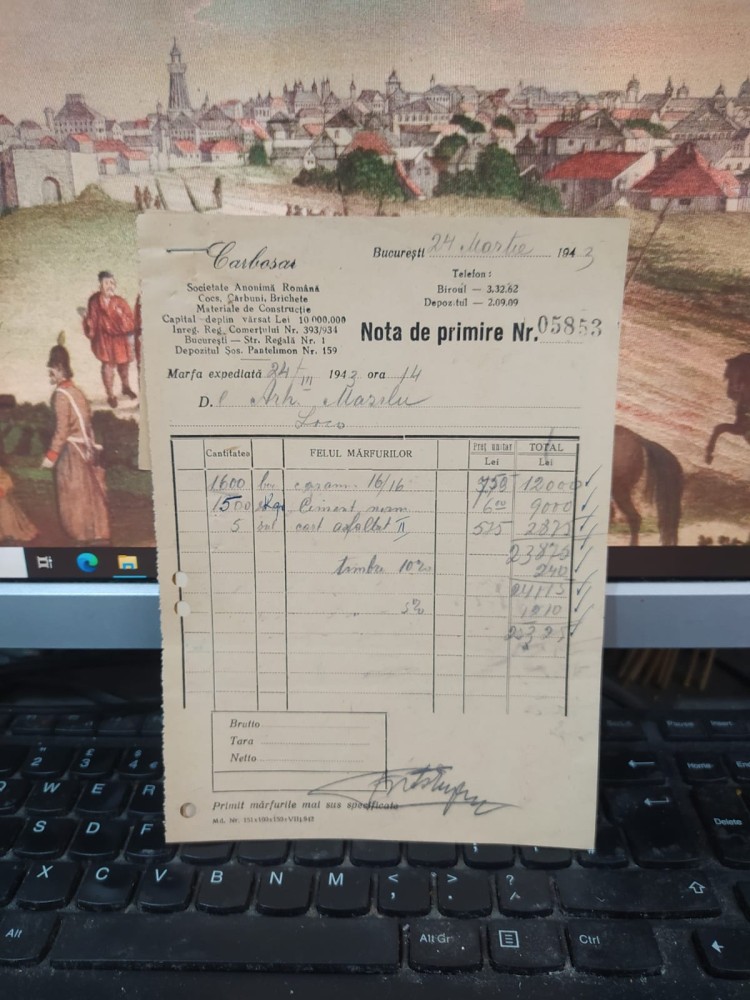 Carbosar
Societate Anonimă Română
Cocs, Cărbuni, Brichete
Materiale de Construcție
Capital deplin vărsat Lei 10.000.000
Inreg. Reg. Comerțului Nr. 393/934
București — Str. Regală Nr. 1
Depozitul Șos. Pantelimon Nr. 159
București 24 Martie 1943
Telefon:
Biroul — 3.32.62
Depozitul — 2.09.09
Nota de primire Nr. 05853
Marfa expediată 24/III 1943 ora 14
D. l Arh. Masilu
Loco
Cantitatea FELUL MĂRFURILOR Preț unitar TOTAL
Lei Lei
1600 buc caram. 16/16 750 12000
1500 kgr Ciment norm 6 00 9000
5 sul cart asfaltat II 575 2875
23875
timbru 10% 240
24115
" 5% 1210
25325
Brutto
Tara
Netto
Primit mărfurile mai sus specificate